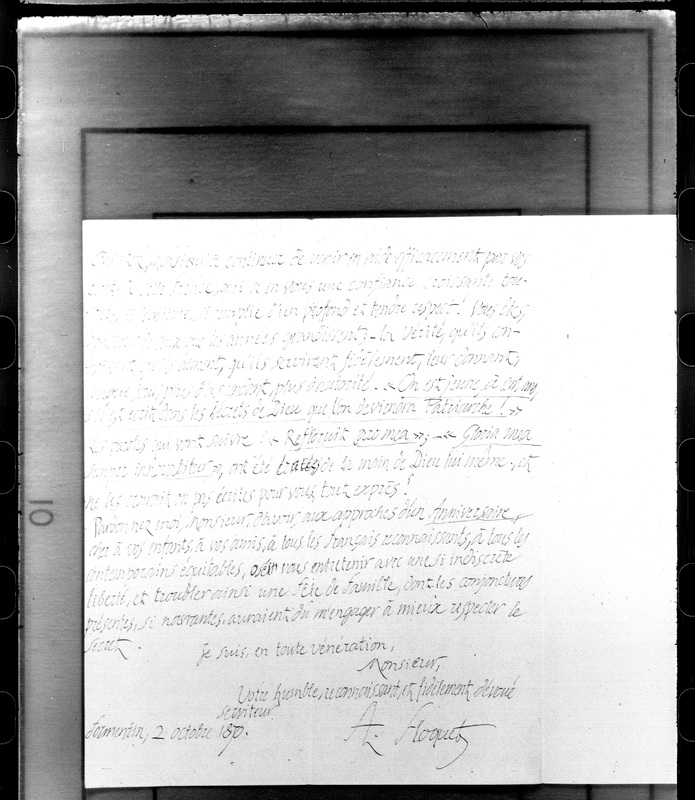 Monsieur, continuez de venir en aide efficacement par vos
cette France, qui a en vous une confiance croissante tou-
remplie d'un profond et tendre respect! Vous êtes
que les années grandissent; - la Vérité, qu'ils con-
qu'ils aiment, qu'ils serviront fidèlement, leur donnant,
chaque jour, plus d'ascendant, plus d'autorité. « On est jeune, à cent ans,
s'il est écrit dans les décrets de Dieu que l'on deviendra Patriarche! »
Les paroles qui vont suivre: « Refloruit mea »; - « Gloria mea
semper innovabitur », ont été de la main de Dieu lui même, et
ne les aurait on pas écrites pour vous tout exprès?
Pardonnez moi, Monsieur, d'avoir, aux approches d'un Anniversaire
cher à vos enfants, à vos amis, à tous les français reconnaissants, à tous les
contemporains équitables, osé vous entretenir avec une si indiscrète
liberté, et troubler ainsi une fête de famille, dont les conjonctures
présentes, si navrantes, auraient dû m'engager à mieux respecter le
secret.
Je suis, en toute vénération,
Monsieur,
Votre humble, reconnaissant, et fidèlement dévoué
serviteur
Formentin, 2 octobre
A. Floquet
10